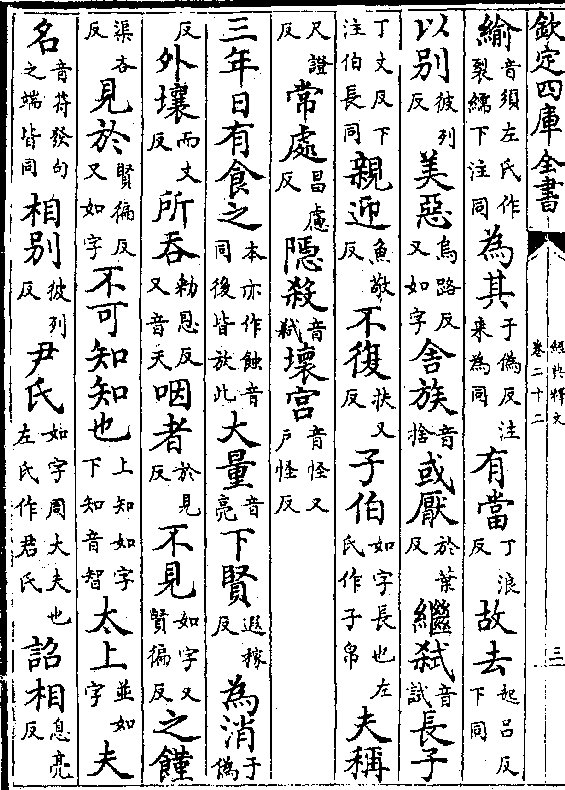 欽定四庫全書
經典釋文
卷二十二
三
緰音須左氏作裂繻下注同為其于偽反注來為同有當丁浪反故去起吕反下同
以别彼列反美惡烏路反又如字舍族音捨或厭於葉反繼弑音試長子
丁丈反下注伯長同親迎魚敬反不復扶又反子伯如字長也左氏作子帛夫稱
尺證反常處昌慮反隱殺音弑壞宫音怪又户怪反
三年日有食之本亦作蝕音同後皆放此大量音亮下賢遐稼反為消于偽
反外壤而丈反所吞勑恩反又音天咽者於見反不見如字又賢徧反之饉
渠吝反見於賢徧反又如字不可知知也上知如字下知音智太上並如字夫
名音符發句之端皆同相别彼列反尹氏如字周大夫也左氏作君氏詔相息亮反